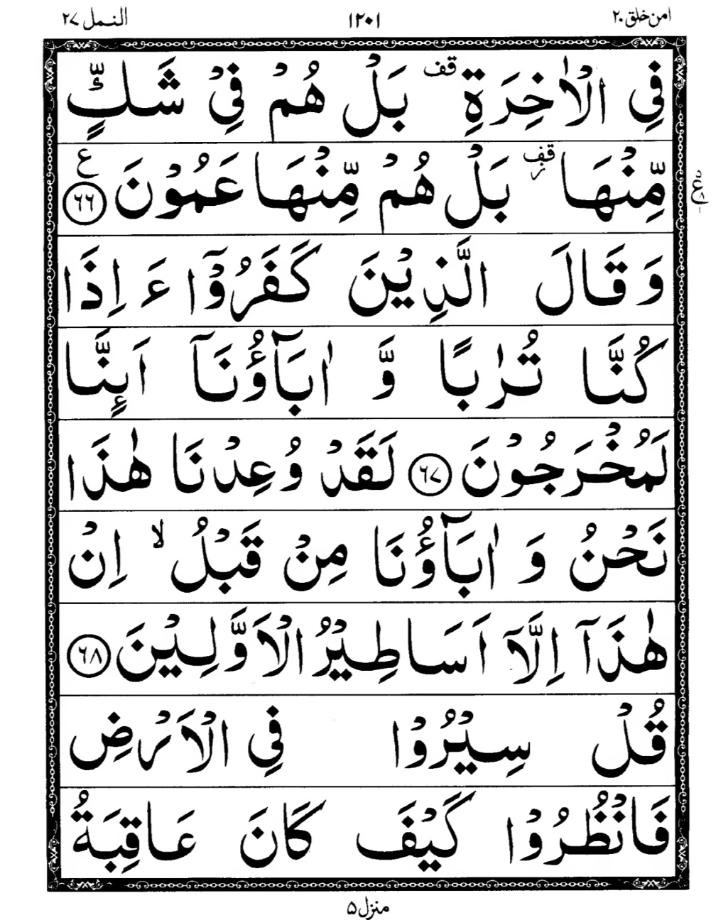 امن خلق ۲۰ ۱۲۰۱ النمل ۲۷
فِی الْاٰخِرَةِ ۫قف بَلْ هُمْ فِیْ شَكٍّ
مِّنْهَا ۫قف ز بَلْ هُمْ مِّنْهَا عَمُوْنَ ﴿۶۶﴾ ع
وَ قَالَ الَّذِیْنَ كَفَرُوْۤا ءَ اِذَا
كُنَّا تُرٰبًا وَّ اٰبَآؤُنَاۤ اَىِٕنَّا
لَمُخْرَجُوْنَ ﴿۶۷﴾ لَقَدْ وُعِدْنَا هٰذَا
نَحْنُ وَ اٰبَآؤُنَا مِنْ قَبْلُ ۙ اِنْ
هٰذَاۤ اِلَّاۤ اَسَاطِیْرُ الْاَوَّلِیْنَ ﴿۶۸﴾
قُلْ سِیْرُوْا فِی الْاَرْضِ
فَانْظُرُوْا كَیْفَ كَانَ عَاقِبَةُ
منزل ۵